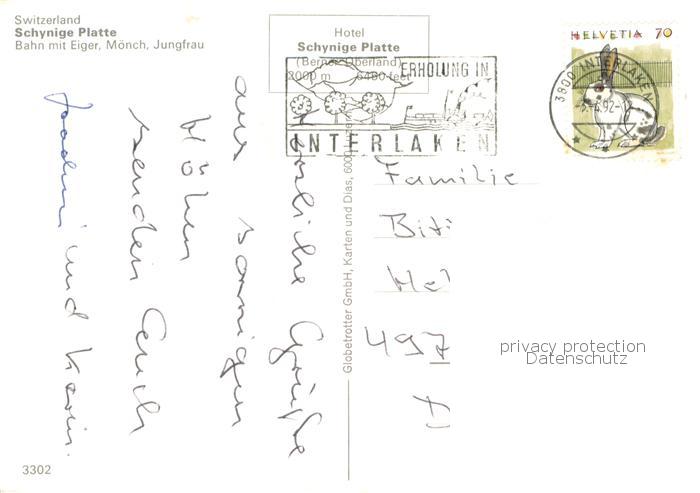 Switzerland
Schynige Platte
Bahn mit Eiger, Mönch, Jungfrau
Hotel
Schynige Platte
(Berner Oberland)
2000 m 6460 feet
ERHOLUNG IN
INTERLAKEN
HELVETIA 70
3800 INTERLAKEN
92-12
Herzliche Grüße
aus sonnigen
Höhen
senden Euch
und Karin.
Globetrotter GmbH, Karten und Dias, 6000
Familie
Bit
Hel
497
D
privacy protection
Datenschutz
3302